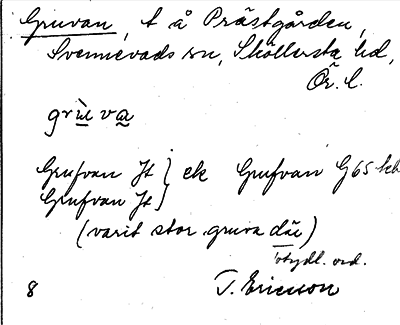 Gruvan, t å Prästgården,
Svennevads sn, Sköllersta hd,
Ör. l.
grùva
Grufvan Jt } ek Grufvan G65 kb
Grufvan Jt
(varit stor gruva där)
otydl. ord.
8 T. Ericsson